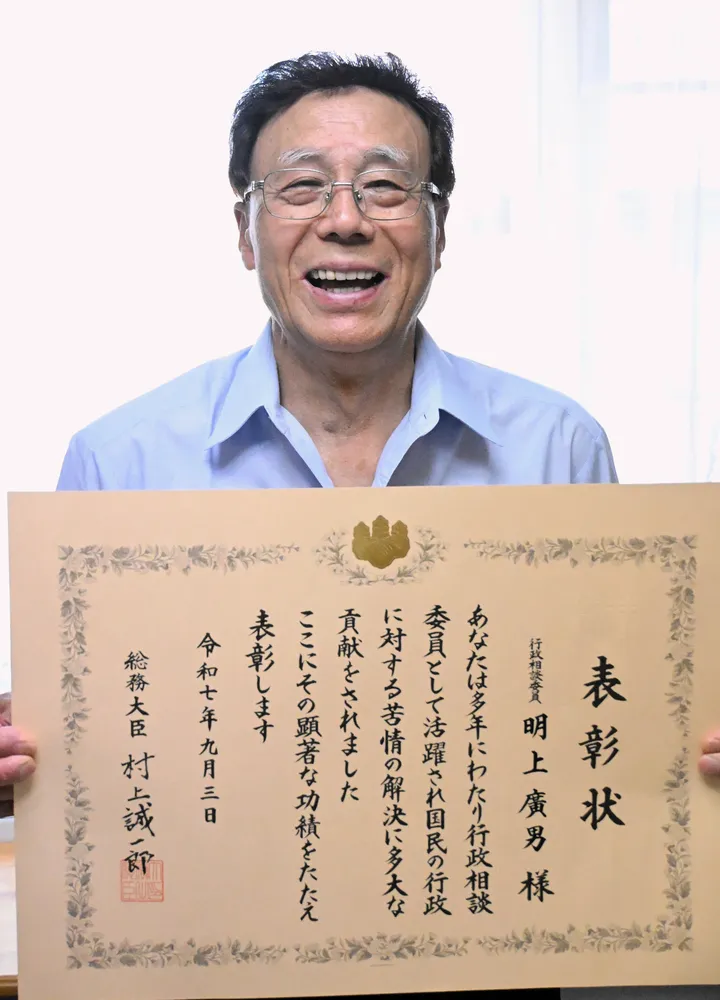 表彰状
行政相談委員 明上廣男様
あなたは多年にわたり行政相談
委員として活躍され国民の行政
に対する苦情の解決に多大な
貢献をされました
ここにその顕著な功績をたたえ
表彰します
令和七年九月三日
総務大臣 村上誠一郎